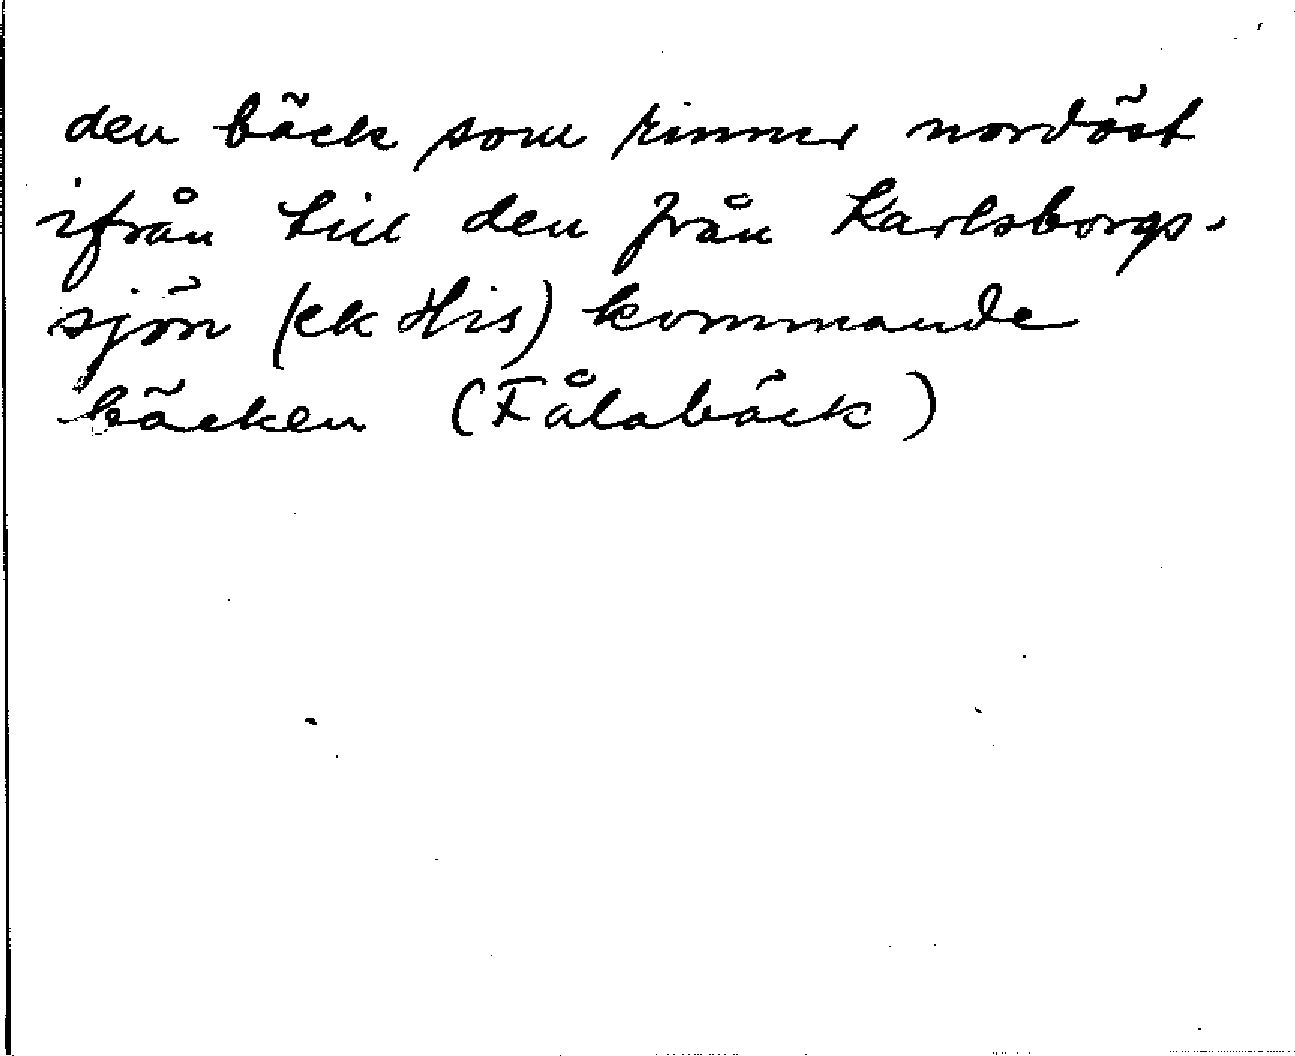 den bäck som rinner nordöst
ifrån till den från Karlsborgs-
sjön (ek His) kommande
bäcken (Fålabäck)